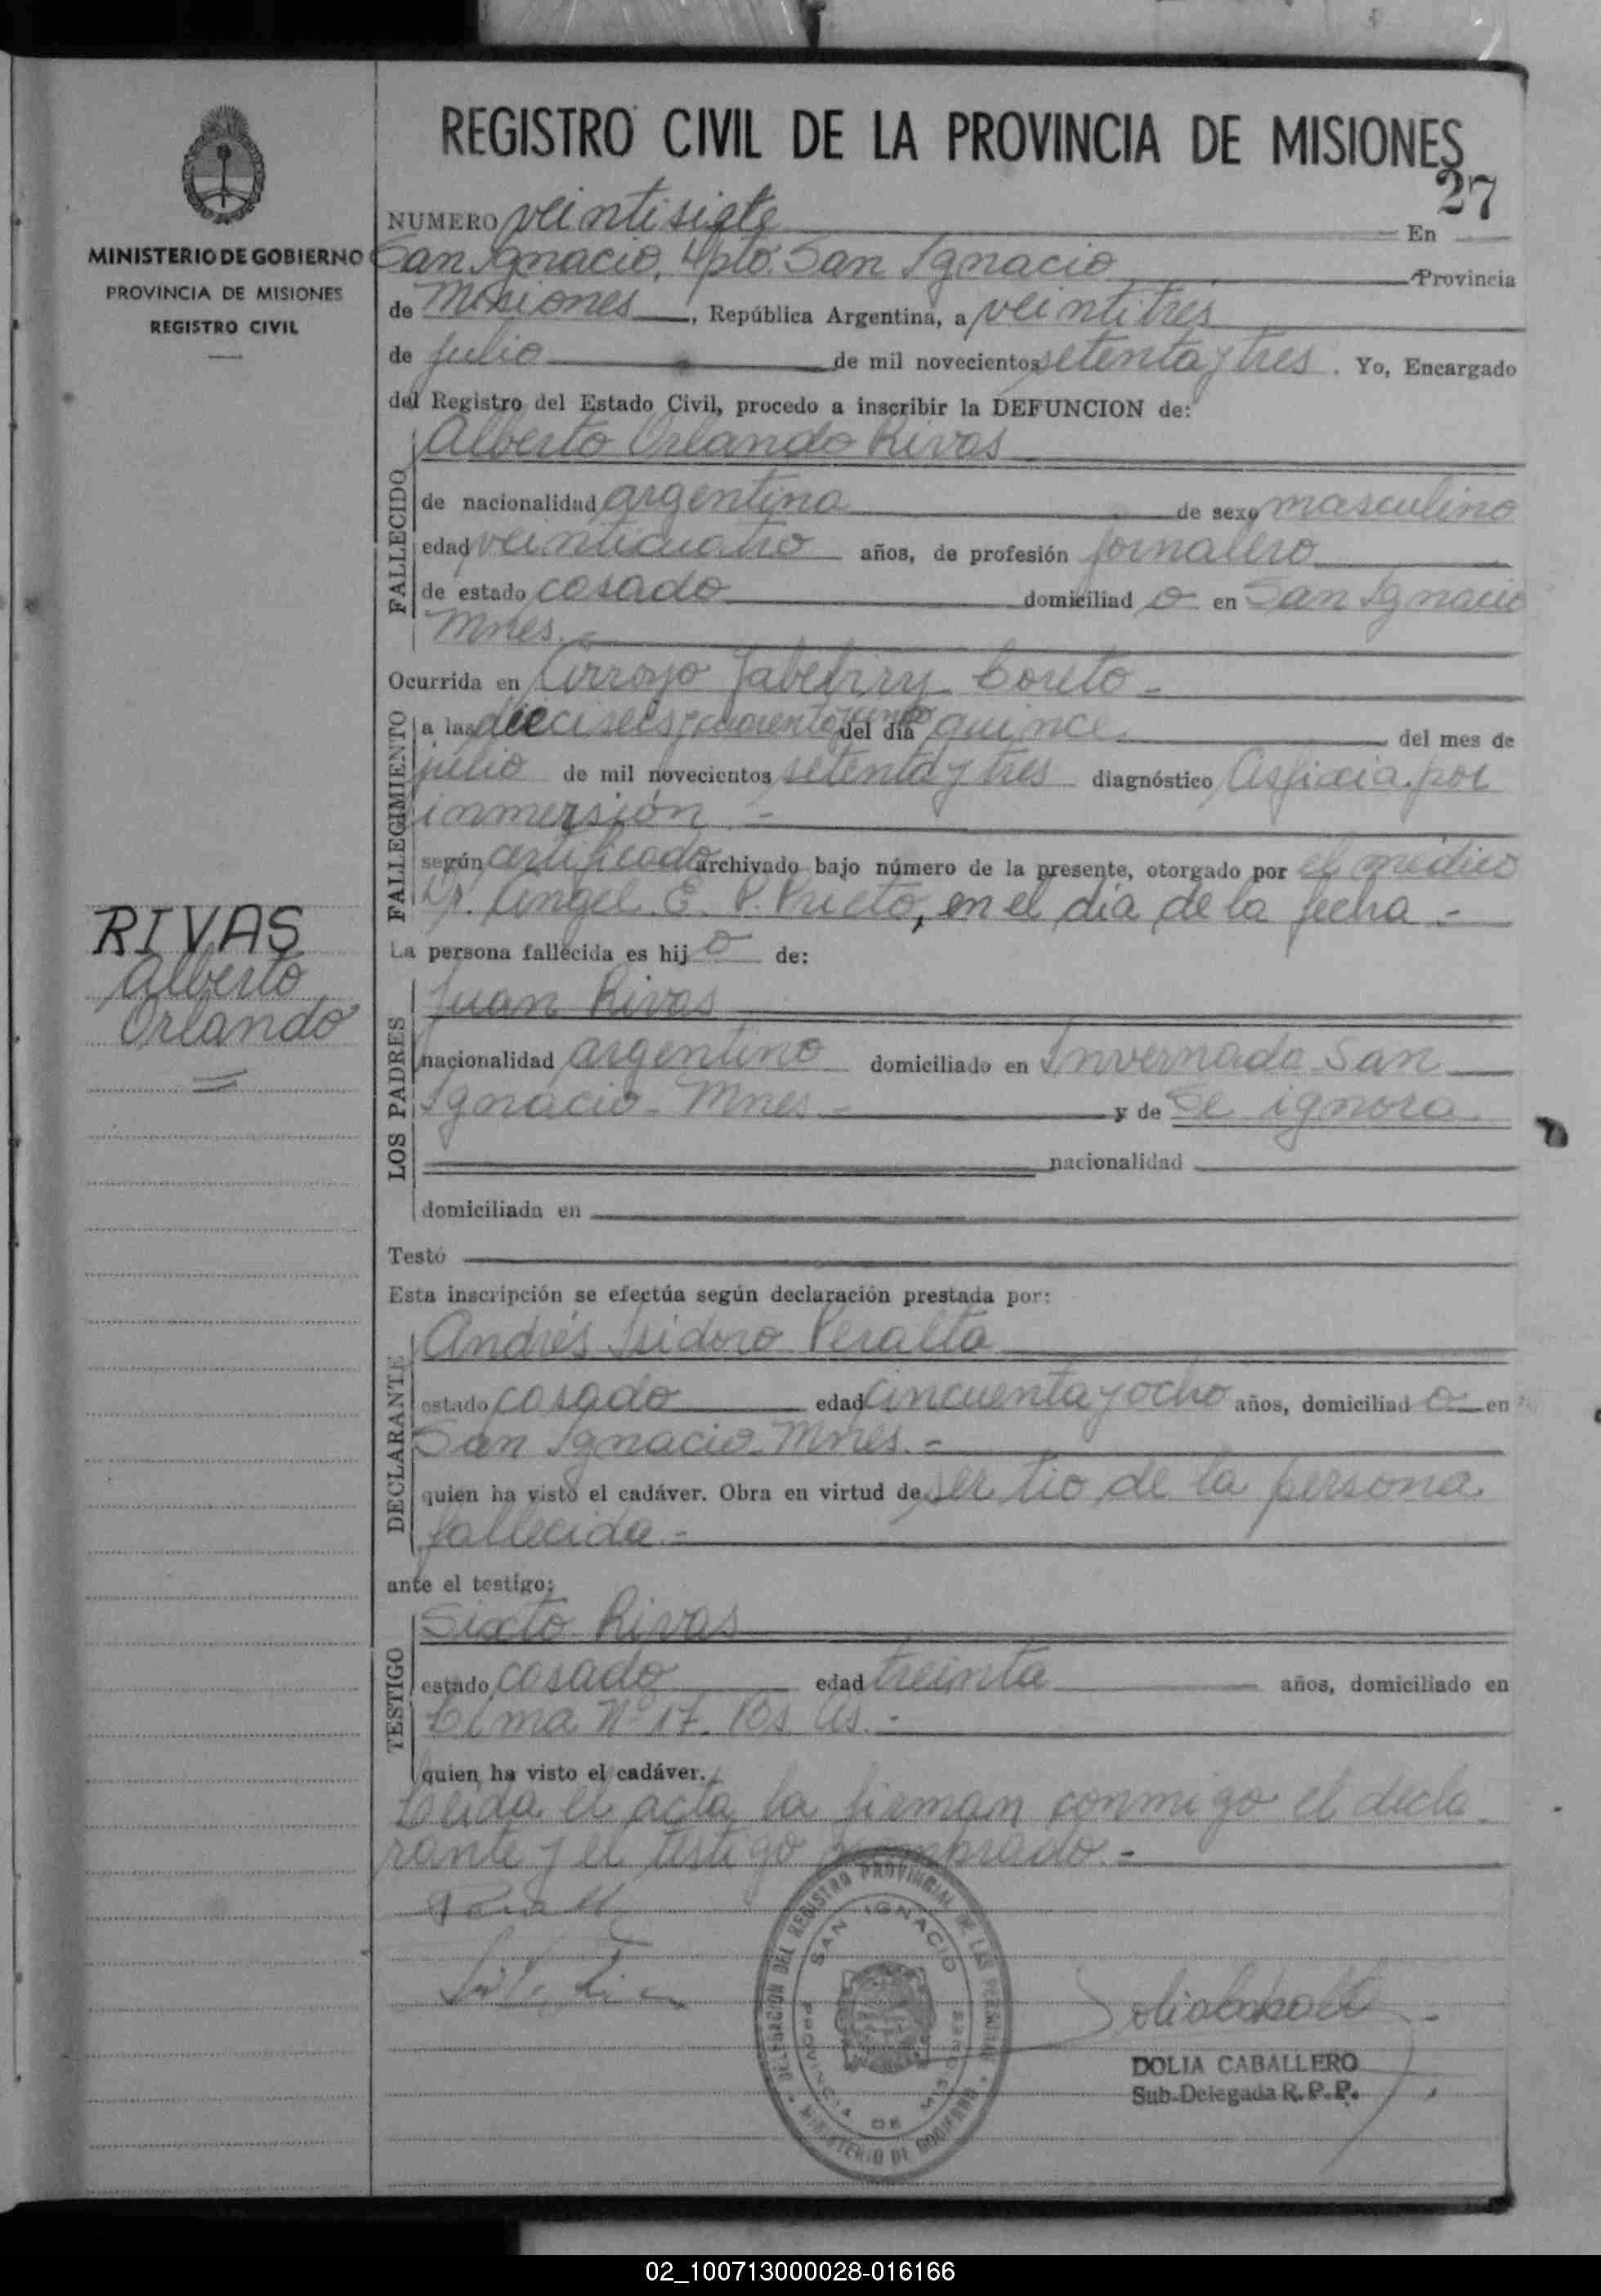 REGISTRO CIVIL DE LA PROVINCIA DE MISIONES
27
MINISTERIO DE GOBIERNO
PROVINCIA DE MISIONES
REGISTRO CIVIL
NUMERO veintisiete En
San Ignacio, Dpto. San Ignacio Provincia
de Misiones, República Argentina, a veintitres
de julio de mil novecientos setenta y tres. Yo, Encargado
del Registro del Estado Civil, procedo a inscribir la DEFUNCION de:
FALLECIDO
Alberto Orlando Rivas
de nacionalidad argentina de sexo masculino
edad veinticuatro años, de profesión jornalero
de estado casado domiciliad o en San Ignacio
Mnes.-
Ocurrida en Arroyo Yabebiry Loreto -
FALLECIMIENTO
a las dieciseis y cuarenta y cinco del día quince del mes de
julio de mil novecientos setenta y tres diagnóstico Asfixia por
inmersión -
según certificado archivado bajo número de la presente, otorgado por el médico
Dr. Angel E. P. Prieto, en el día de la fecha -
RIVAS
Alberto
Orlando
La persona fallecida es hij o de:
LOS PADRES
Juan Rivas
nacionalidad argentino domiciliado en Invernada San
Ignacio - Mnes - y de Se ignora
nacionalidad
domiciliada en
Testó
Esta inscripción se efectúa según declaración prestada por:
DECLARANTE
Andrés Isidoro Peralta
estado casado edad cincuenta y ocho años, domiciliad o en
San Ignacio Mnes. -
quien ha visto el cadáver. Obra en virtud de ser tio de la persona
fallecida -
ante el testigo:
TESTIGO
Sixto Rivas
estado casado edad treinta años, domiciliado en
Lima Nº 17. Bs As. -
quien ha visto el cadáver.
Leida el acta la firman conmigo el decla
rante y el testigo nombrado -
REGISTRO PROVINCIAL DE LAS PERSONAS
SAN IGNACIO
PROVINCIA DE MISIONES
MINISTERIO DE GOBIERNO
DOLIA CABALLERO
Sub-Delegada R. P. P.
02_100713000028-016166